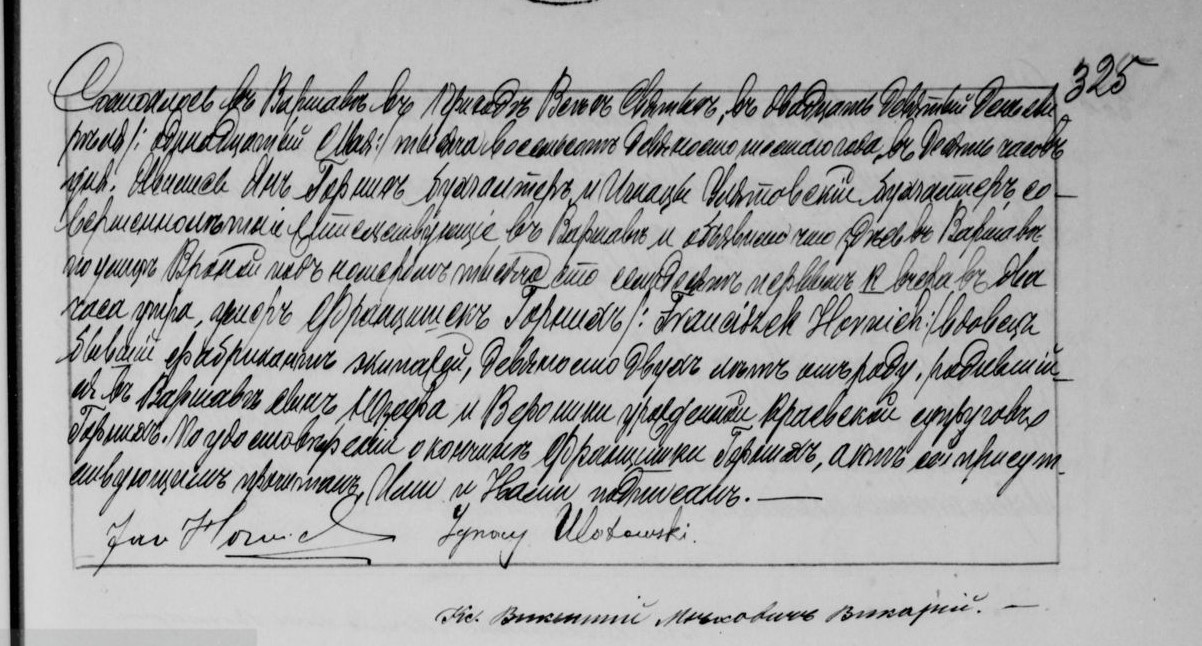 325
Состоялось въ Варшавѣ въ приходѣ Всѣхъ Святыхъ, въ двадцать девятый день Ап
рѣля /: одинадцатый Мая :/ тысяча восемьсотъ девяносто шестого года, въ десять часовъ
дня. Явились Янъ Горнихъ бухгалтеръ, и Игнацы Улятовскій бухгалтеръ, со-
вершеннолѣтніе жительствующіе въ Варшавѣ и объявили что здѣсь въ Варшавѣ
по улицѣ Вроней подъ номеромъ тысяча сто семьдесятъ первымъ вчера въ два
часа утра, умеръ Францишекъ Горнихъ /: Franciszek Hornich :/ вдовецъ
бывшій фабрикантъ экипажей, девяносто двухъ лѣтъ отъ роду, родившій-
ся въ Варшавѣ сынъ Юзефа и Вероники урожденной Краевской супруговъ
Горнихъ. По удостовѣреніи о кончинѣ Францишка Горниха, актъ сей присут-
ствующимъ прочитанъ, Ими и Нами подписанъ. —
Jan Hornich Ignacy Ulatowski.
Кс. Викентій Викарій. —